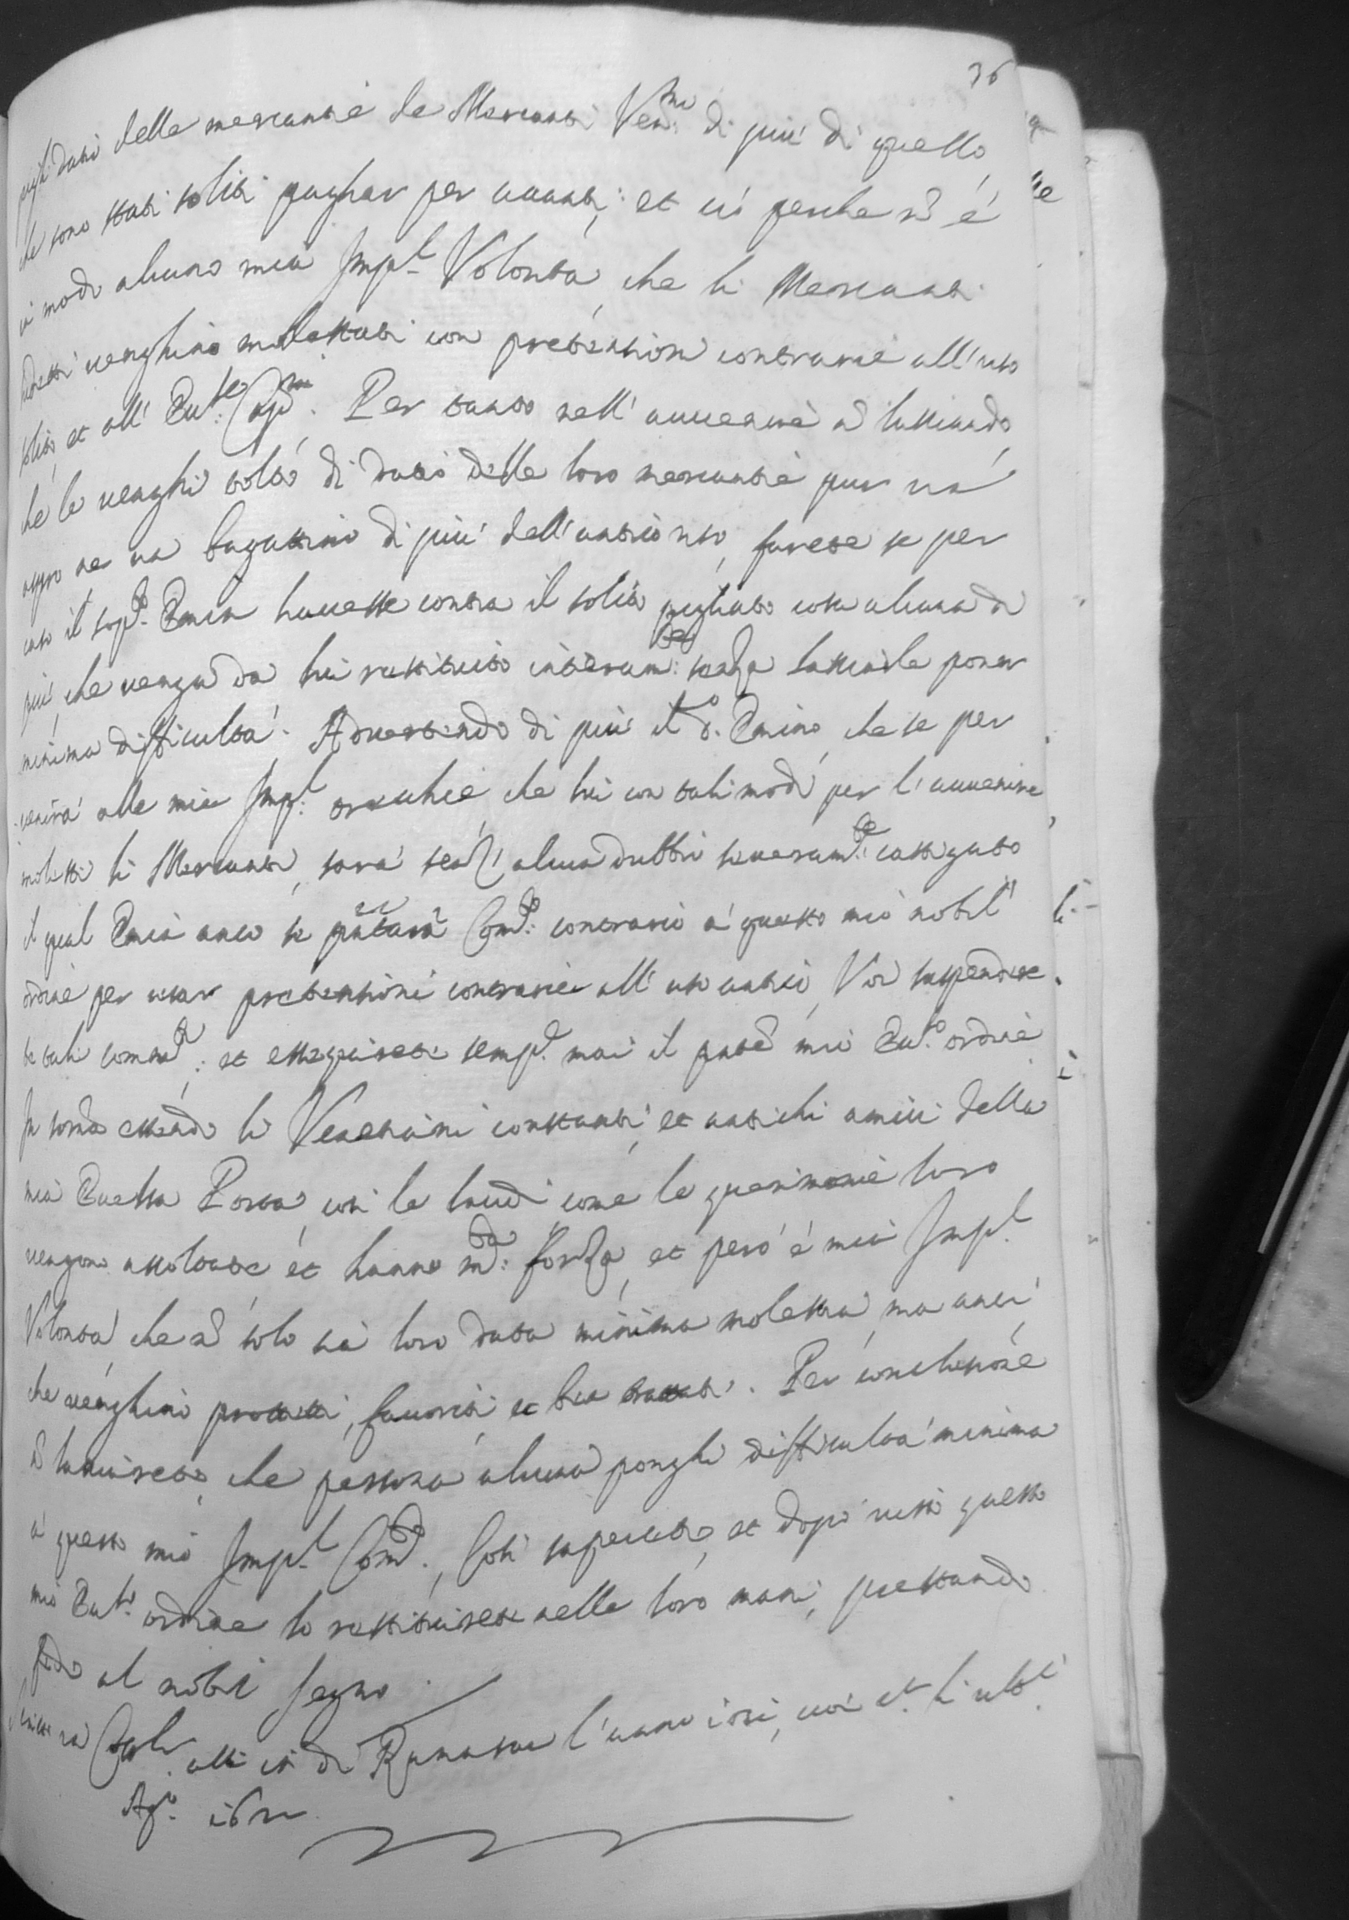 36
delli datii delle mercantie de Mercanti Ven:ni di più di quello,
che sono stati soliti paghar per avanti; et ciò perche nõ è
in modo alcuno mia Imp.l Volontà, che li Mercanti
sudetti venghino molestati con pretensioni contrarie all'uso
solito et all' Ecc:se Cap:ni. Per tanto nell'avvenire nõ lassiando,
che le venghi tolto di datio delle loro mercantie pur un'
aspro ne un bagattino di più dell'antico uso, farete se per
caso il sop.to Emin havesse contra il solito pigliato cosa alcuna di
più, che venga da lui restituito interam:te senza lassiarle poner
minima difficultà. Advertendo di più il d.o Emino, che se per
venirà alle mie Imp.l orechie, che lui con tali modi per l'avvenire
molesti li Mercanti, sarà senz'alcun dubbio severam:te castigato
il qual Emin anco se p̃ntarà Com.to contrario a questo mio nobil'
ordine per usar pretensioni contrarie all'uso antico, Voi suspendere
te tali comm.ti; et essequirete semp.e mai il pñte mio Ecc.so ordine
In som̃a essendo li Venetiani constanti, et antichi amici della
mia Eccelsa Porta, così le laudi come le querimonie loro
vengono ascoltate et hanno m:ta forza, et però è mia Imp.l
Volontà che nõ solo sia loro data minima molestia, ma anci
che venghino protetti, favoriti et ben trattati. Per conclusione
nõ lassiarete, che persona alcuna ponghi difficultà minima
a questo mio Imp.l Com.to. Così sapiate, et dopò visto questo
mio Ecc.so ordine lo restituirete nelle loro mani, prestando
fede al nobil segno.
Scritto in Cost.li alli 10 di Ramasan l'anno 1051, cioè
Ag.o 1651